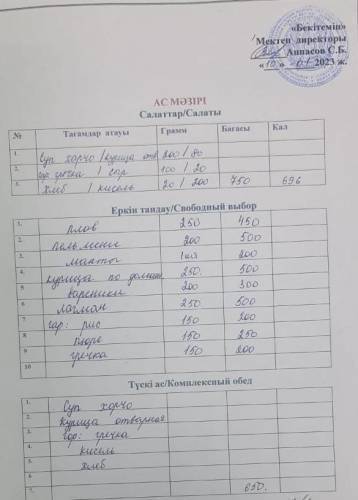 «Бекітемін»
Мектеп директоры
Аппасов С.Б.
«10» 01 2023 ж.
АС МӘЗІРІ
Салаттар/Салаты
№ Тағамдар атауы Грамм Бағасы Кал
1. Суп харчо / курица отв 200 / 80
2. гар гречка / сыр 100 / 20
3. Хлеб / кисель 20 / 200 750 696
Еркін таңдау/Свободный выбор
1. плов 250 450
2. пельмени 200 500
3. манты 1шт 200
4. курица по домашн 250 500
5. вареники 200 300
6. лагман 250 500
7. гар: рис 150 200
8. пюре 150 250
9. гречка 150 200
10
Түскі ас/Комплексный обед
1. Суп харчо
2. Курица отварная
3. гар: гречка
4. кисель
5. хлеб
6.
7. 650.